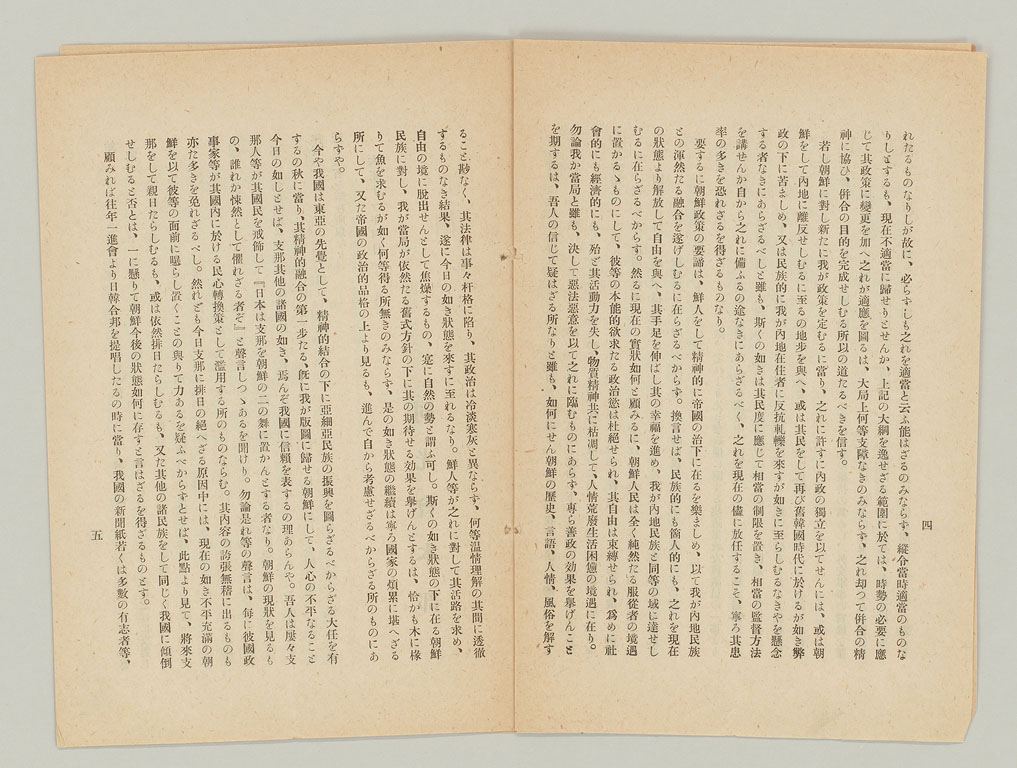 四
れたるものなりしが故に、必らずしも之れを適當と云ふ能はざるのみならず、縱令當時適當のものな
りしとするも、現在不適當に歸せりとせんか、上記の大綱を逸せざる範圍に於ては、時勢の必要に應
じて其政策に變更を加へ之れが適應を圖るは、大局上何等支障なきのみならず、之れ却つて併合の精
神に協ひ、併合の目的を完成せしむる所以の道たるべきを信す。
若し朝鮮に對し新たに我が政策を定むるに當り、之れに許すに内政の獨立を以てせんには、或は朝
鮮をして内地に離反せしむるに至るの地步を與へ、或は其民をして再び舊韓國時代に於けるが如き弊
政の下に苦ましめ、又は民族的に我が内地在住者に反抗軋轢を來すが如きに至らしむるなきやを懸念
する者なきにあらざるべしと雖も、斯くの如きは其民度に應じて相當の制限を置き、相當の監督方法
を講ぜんか自から之れに備ふるの途なきにあらざるべく、之れを現在の儘に放任するこそ、寧ろ其患
率の多きを恐れざるを得ざるものなり。
要するに朝鮮政策の要諦は、鮮人をして精神的に帝國の治下に在るを樂ましめ、以て我が内地民族
との渾然たる融合を遂げしむるに在らざるべからず。換言せば、民族的にも箇人的にも、之れを現在
の狀態より解放して自由を與へ、其手足を伸ばし其の幸福を進め、我が内地民族と同等の域に達せし
むるに在らざるべからす。然るに現在の實狀如何と顧みるに、朝鮮人民は全く純然たる服從者の境遇
に置かるゝものにして、彼等の本能的欲求たる政治慾は杜絶せられ、其自由は束縛せられ、爲めに社
會的にも經濟的にも、殆ど其活動力を失し、物質精神共に枯凋して、人情荒廢生活困憊の境遇に在り。
勿論我か當局と雖も、決して惡法惡意を以て之れに臨むものにあらず、專ら善政の効果を擧げんこと
を期するは、吾人の信じて疑はざる所なりと雖も、如何にせん朝鮮の歷史、言語、人情、風俗を解す
ること尠なく、其法律は事々杆格に陷り、其政治は冷淡寒灰と異ならず、何等温情理解の其間に透徹
するものなき結果、遂に今日の如き狀態を來すに至れるなり。鮮人等が之れに對して其活路を求め、
自由の境に脱出せんとして焦燥するもの、寔に自然の勢と謂ふ可し。斯くの如き狀態の下に在る朝鮮
民族に對し、我が當局が依然たる舊式方針の下に其の期待せる効果を擧げんとするは、恰かも木に椽
りて魚を求むるが如く何等得る所無きのみならず、是の如き狀態の繼續は寧ろ國家の煩累に堪へざる
所にして、又た帝國の政治的品格の上より見るも、進んで自から考慮せざるべからざる所のものにあ
らずや。
今や我國は東亞の先覺として、精神的結合の下に亞細亞民族の振興を圖らざるべからざる大任を有
するの秋に當り、其精神的融合の第一步たる、旣に我が版圖に歸せる朝鮮にして、人心の不平なること
今日の如しとせば、支那其他の諸國の如き、焉んぞ我國に信賴を表するの理あらんや。吾人は屢々支
那人等が其國民を戒飾して『日本は支那を朝鮮の二の舞に置かんとする者なり。朝鮮の現狀を見るも
の、誰れか悚然として懼れざる者ぞ』と聲言しつゝあるを聞けり。勿論是れ等の聲言は、每に彼國政
事家等が其國内に於ける民心轉換策として濫用する所のものならむ。其内容の誇張無稽に出るものも
亦た多きを免れざるべし。然れども今日支那に排日の絶へざる原因中には、現在の如き不平充滿の朝
鮮を以て彼等の面前に曝らし置くことの與りて力あるを疑ふべからずとせば、此點より見て、將來支
那をして親日たらしむるも、或は依然排日たらしむるも、又た其他の諸民族をして同じく我國に傾倒
せしむると否とは、一に懸りて朝鮮今後の狀態如何に存すと言はざるを得ざるものとす。
顧みれば往年一進會より日韓合邦を提唱したるの時に當り、我國の新聞紙若くは多數の有志者等、
五